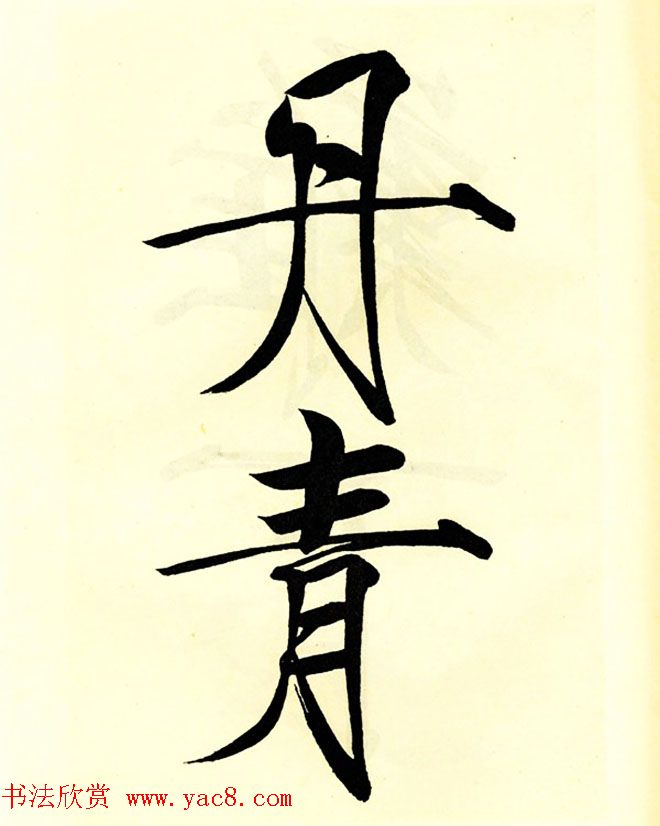 丹
青
书法欣赏 www.yac8.com